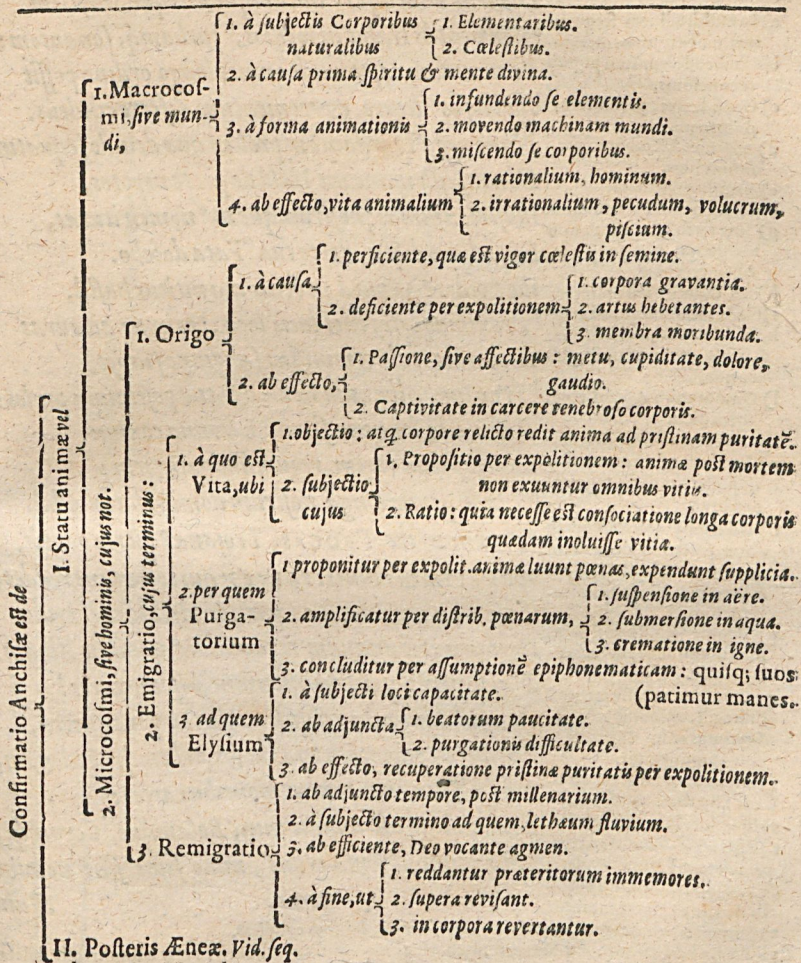 1. à ſubjectis Corporibus naturalibus
1. Elementaribus.
2. Cœleſtibus.
1. Macrocoſ-
mi, ſive mun-
di,
2. à cauſa prima ſpiritu & mente divina.
3. à forma animationis
1. infundendo ſe elementis.
2. movendo machinam mundi.
3. miſcendo ſe corporibus.
4. ab effecto, vita animalium
1. rationalium, hominum.
2. irrationalium, pecudum, volucrum,
piſcium.
1. Origo
1. à cauſa
1. perficiente, quæ eſt vigor cœleſtis in ſemine.
2. deficiente per expolitionem
1. corpora gravantia.
2. artus hebetantes.
3. membra moribunda.
2. ab effecto,
1. Paſſione, ſive affectibus : metu, cupiditate, dolore,
gaudio.
2. Captivitate in carcere tenebroſo corporis.
Confirmatio Anchiſæ eſt de
I. Statu animæ vel
2. Microcoſmi, ſive hominis, cujus not.
2. Emigratio, cujus terminus :
1. à quo eſt
Vita, ubi
1. objectio : atq. corpore relicto redit anima ad priſtinam puritatē.
2. ſubjectio
cujus
1. Propoſitio per expolitionem : animæ poſt mortem
non exuuntur omnibus vitiis.
2. Ratio : quia neceſſe eſt conſociatione longa corporis
quædam inoluiſſe vitia.
2. per quem
Purga-
torium
1 proponitur per expolit. animæ luunt pœnas, expendunt ſupplicia.
2. amplificatur per diſtrib. pœnarum,
1. ſuſpenſione in aëre.
2. ſubmerſione in aqua.
3. crematione in igne.
3. concluditur per aſſumptionē epiphonematicam : quiſq; ſuos
(patimur manes.
3 ad quem
Elyſium
1. à ſubjecti loci capacitate.
2. ab adjuncta
1. beatorum paucitate.
2. purgationis difficultate.
3. ab effecto, recuperatione priſtinæ puritatis per expolitionem.
3. Remigratio
1. ab adjuncto tempore, poſt millenarium.
2. à ſubjecto termino ad quem, lethæum fluvium.
3. ab efficiente, Deo vocante agmen.
4. à fine, ut
1. reddantur præteritorum immemores.
2. ſupera reviſant.
3. in corpora revertantur.
II. Poſteris Æneæ. Vid. ſeq.